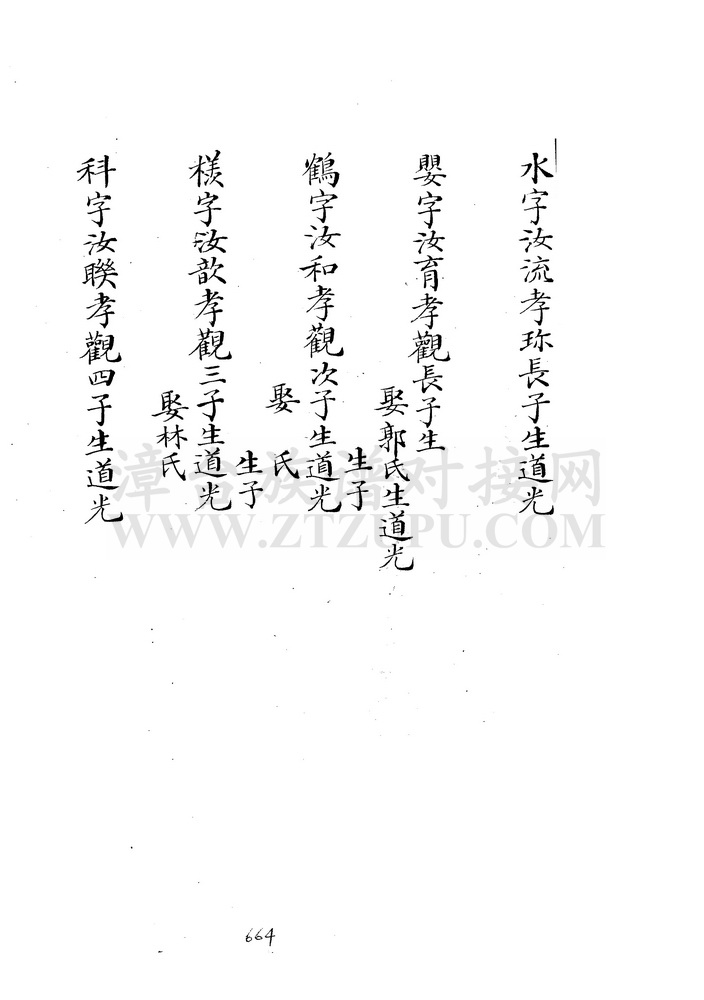 水字汝流孝珎長子生道光
嬰字汝育孝觀長子生
娶郭氏生道光
生子
鶴字汝和孝觀次子生道光
娶　氏
生子
樣字汝歆孝觀三子生道光
娶林氏
科字汝聨孝觀四子生道光
漳台族谱对接网
WWW.ZTZUPU.COM
664